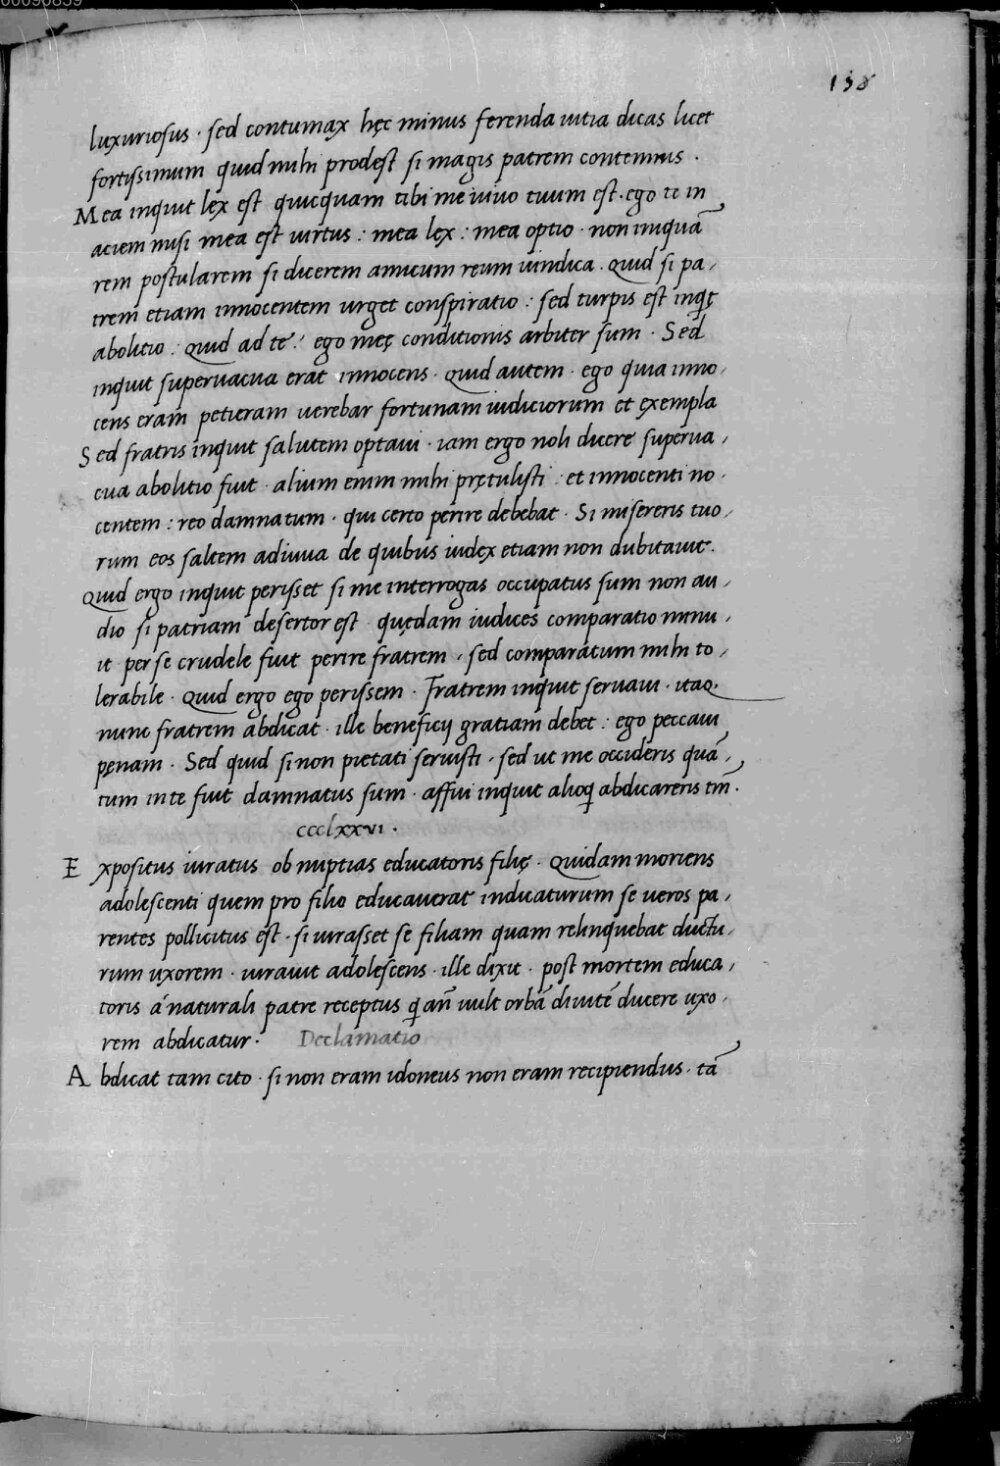 00090839
138
luxuriosus · sed contumax hęc minus ferenda uitia dicas licet
fortissimum quid mihi prodest si magis patrem contemnis ·
Mea inquit lex est quicquam tibi me uiuo tuum est · ego te in
aciem misi mea est uirtus : mea lex : mea optio · non iniquā
rem postularem si dicerem amicum reum uindica · Quid si pa,
trem etiam innocentem urget conspiratio : sed turpis est inqt
abolitio : Quid ad te? ego meę conditionis arbiter sum · Sed
inquit superuacua erat innocens · Quid autem · ego quia inno,
cens eram petieram uerebar fortunam iudiciorum et exempla
Sed fratris inquit salutem optaui · iam ergo noli dicere superua,
cua abolitio fuit · alium enim mihi prętulisti : et innocenti no,
centem : reo damnatum · qui certo perire debebat · Si misereris tuo,
rum eos saltem adiuua de quibus iudex etiam non dubitauit.
Quid ergo inquit perisset si me interrogas occupatus sum non au,
dio si patriam desertor est quędam iudices comparatio minu,
it per se crudele fuit perire fratrem, sed comparatum mihi to,
lerabile · Quid ergo ego perissem · Fratrem inquit seruaui · itaq.
nunc fratrem abdicat · ille beneficij gratiam debet : ego peccaui
pęnam · Sed quid si non pietati seruisti, sed ut me occideris quā,
tum in te fuit damnatus sum · affui inquit alioq abdicareris tm̄ ·
ccclxxvi ·
Expositus iuratus ob nuptias educatoris filię · Quidam moriens
adolescenti quem pro filio educauerat indicaturum se ueros pa,
rentes pollicitus est · si iurasset se filiam quam relinquebat ductu,
rum uxorem · iurauit adolescens · ille dixit · post mortem educa,
toris á naturali patre receptus q an̄ uult orbā diuitē ducere uxo,
rem abdicatur · Declamatio
Abdicat tam cito · si non eram idoneus non eram recipiendus · tā